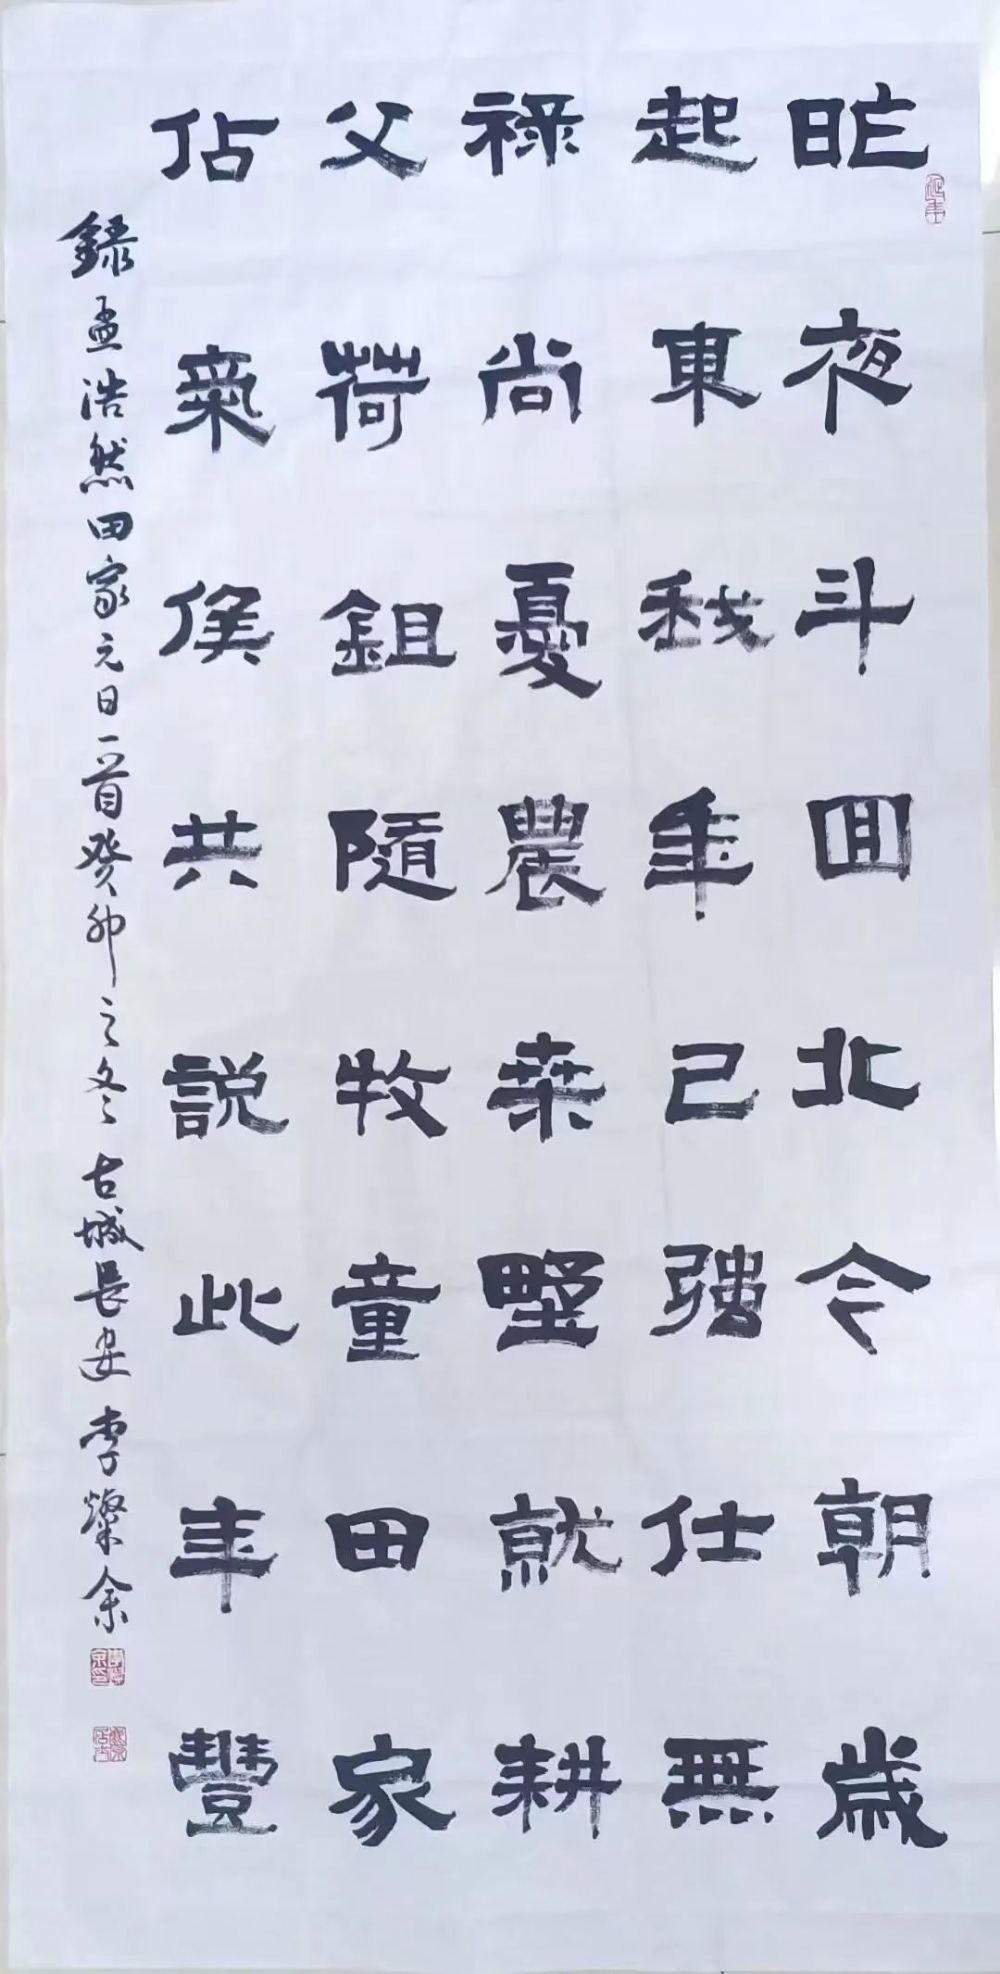 昨夜斗回北今朝歲
起東我年已強仕無
祿尚憂農桒野就耕
父荷鉏隨牧童田家
佔氣候共說此年豐
錄孟浩然田家元日一首癸卯之冬古城長安李燦余
延年